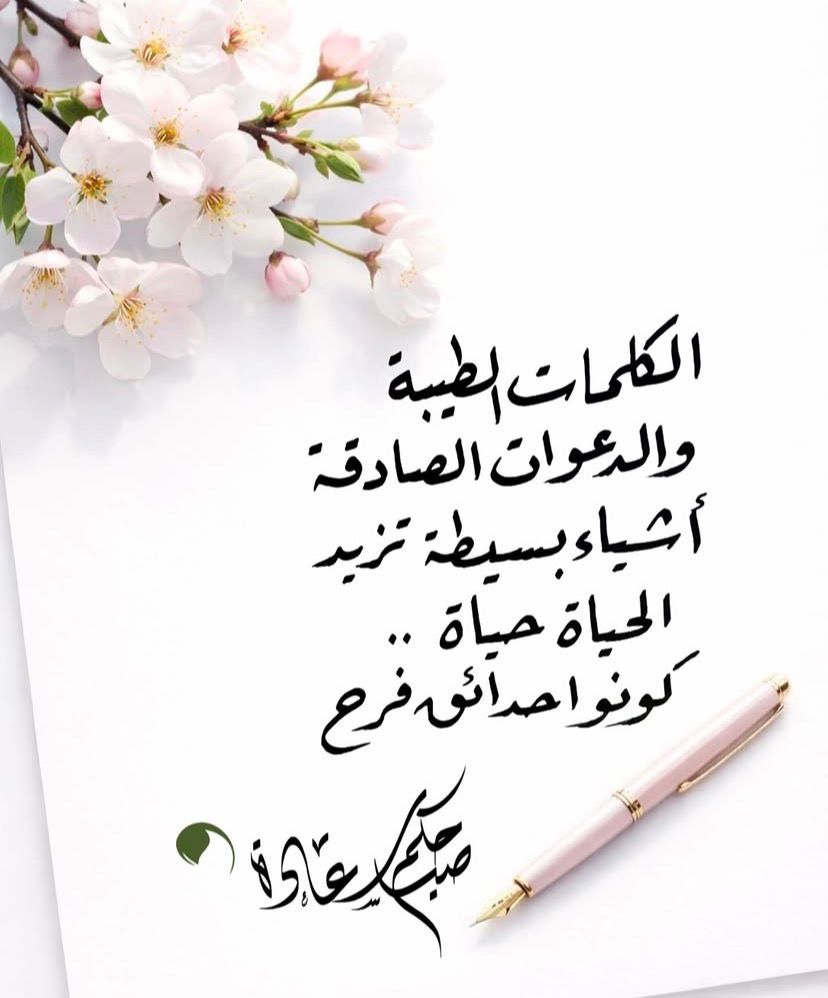 الكلمات الطيبة
والدعوات الصادقة
أشياء بسيطة تزيد
الحياة حياة ..
كونوا حدائق فرح
صباحكم سعادة